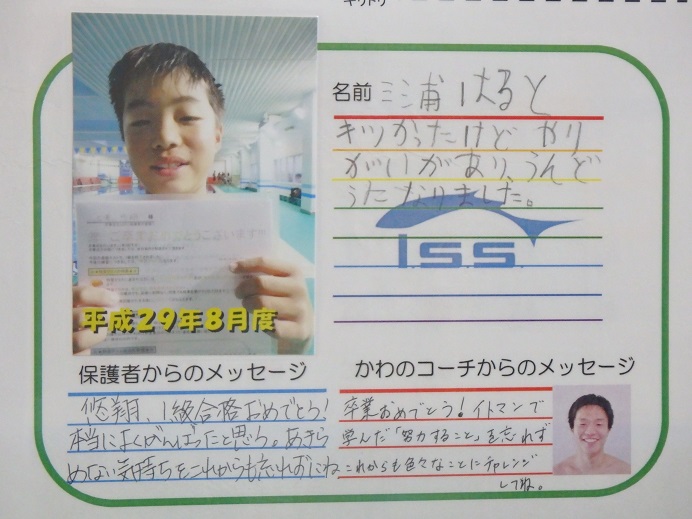 名前 三浦 はると
キツかったけど やり
がいがあり、うんど
うになりました。
I.S.S.
平成29年8月度
保護者からのメッセージ
悠翔、1級合格おめでとう!
本当によくがんばったと思う。あきら
めない気持ちをこれからも忘れずにね
かわのコーチからのメッセージ
卒業おめでとう!イトマンで
学んだ「努力すること」を忘れず
これからも色々なことにチャレンジ
してね。